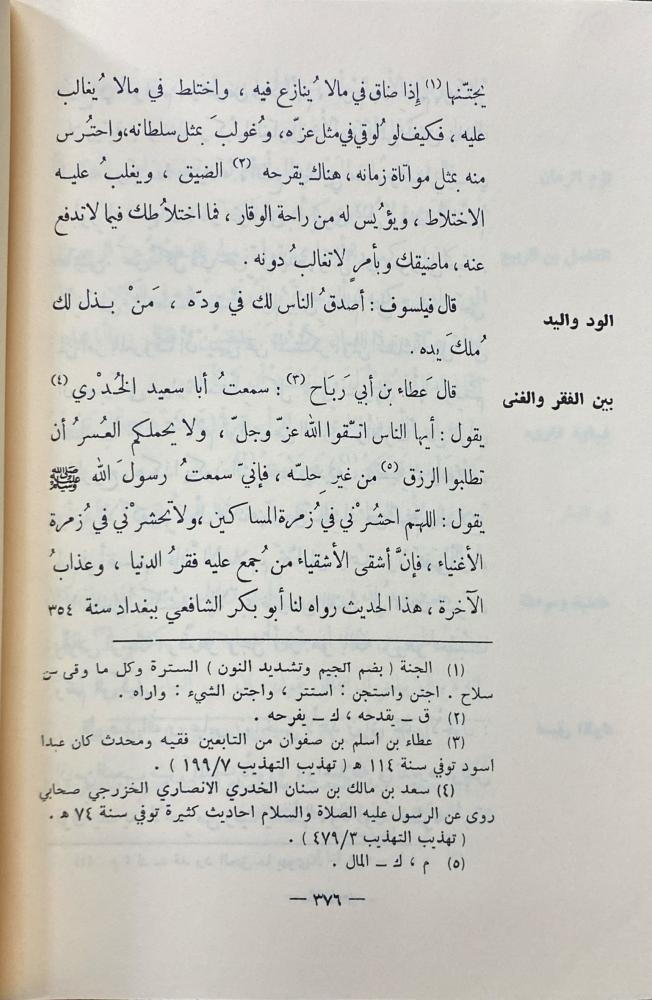 يجتنّها (١) إذا ضاق في مالا يُنازع فيه ، واختلط في مالا يُغالب
عليه ، فكيف لو لُوقي في مثل عزّه ، وغُولبَ بمثل سلطانه، واحتُرس
منه بمثل مواتاة زمانه ، هناك يقرحه (٢) الضيق ، ويغلبُ عليه
الاختلاط ، ويؤيس له من راحة الوقار ، فما اختلاطك فيما لا تدفع
عنه ، ماضيقك وبأمرٍ لاتغالبُ دونه .
الود واليد
قال فيلسوف : أصدقُ الناس لك في ودّه ، مَنْ بذل لك
مُلكَ يده .
بين الفقر والغنى
قال عَطاء بن أبي رَبَاح (٣) : سمعتُ أبا سعيد الخُدْري (٤)
يقول : أيها الناس اتّقوا الله عزّ وجلّ ، ولا يحملكم العُسرُ أن
تطلبوا الرزق (٥) من غير حِلّه ، فإنيّ سمعتُ رسولَ الله ﷺ
يقول : اللهّم احشُرْني في زُمرة المساكين ، ولاتحشرْني في زُمرة
الأغنياء ، فإنَّ أشقى الأشقياء من جُمع عليه فقرُ الدنيا ، وعذابُ
الآخرة ، هذا الحديث رواه لنا أبو بكر الشافعي ببغداد سنة ٣٥٤
(١) الجنة ( بضم الجيم وتشديد النون ) السترة وكل ما وقى من
سلاح . اجتن واستجن : استتر ، واجتن الشيء : واراه .
(٢) ق ــ يقدحه ، ك ــ يفرحه .
(٣) عطاء بن أسلم بن صفوان من التابعين فقيه ومحدث كان عبدا
اسود توفي سنة ١١٤ هـ ( تهذيب التهذيب ١٩٩/٧ ) .
(٤) سعد بن مالك بن سنان الخدري الانصاري الخزرجي صحابي
روى عن الرسول عليه الصلاة والسلام احاديث كثيرة توفي سنة ٧٤ هـ .
( تهذيب التهذيب ٤٧٩/٣ ) .
(٥) م ، ك ــ المال .
— ٣٧٦ —